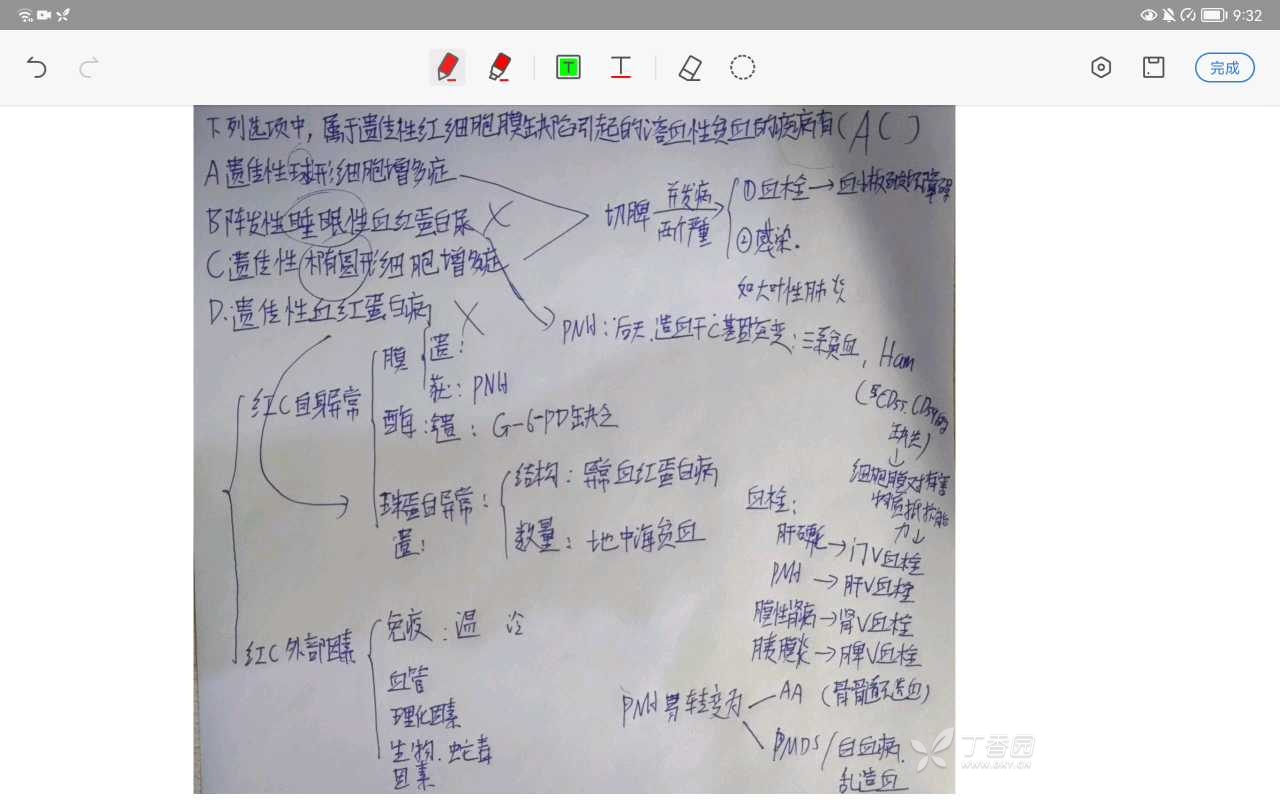 9:32
完成
下列选项中,属于遗传性红细胞膜缺陷引起的溶血性贫血的疾病有(AC)
A遗传性球形细胞增多症
B阵发性睡眠性血红蛋白尿
C遗传性椭圆形细胞增多症
D.遗传性血红蛋白病
切脾 并发病
两个严重
①血栓→血小板破坏障碍
②感染.
如大叶性肺炎
PNH:后天.造血干C基因突变:三系贫血,Ham
(至CD55.CD59的
缺失)
↓
细胞膜对有害
物质抵抗能
力↓
红C自身异常
膜
遗:
获:PNH
酶:遗:G-6-PD缺乏
珠蛋白异常:
遗:
结构:异常血红蛋白病
数量:地中海贫血
血栓:
肝硬化→门V血栓
PNH→肝V血栓
膜性肾病→肾V血栓
胰腺炎→脾V血栓
红C外部因素
免疫:温 冷
血管
理化因素
生物.蛇毒
因素
PNH易转变为
AA (骨髓不造血)
MDS/白血病.
乱造血
丁香园
WWW.DXY.CN